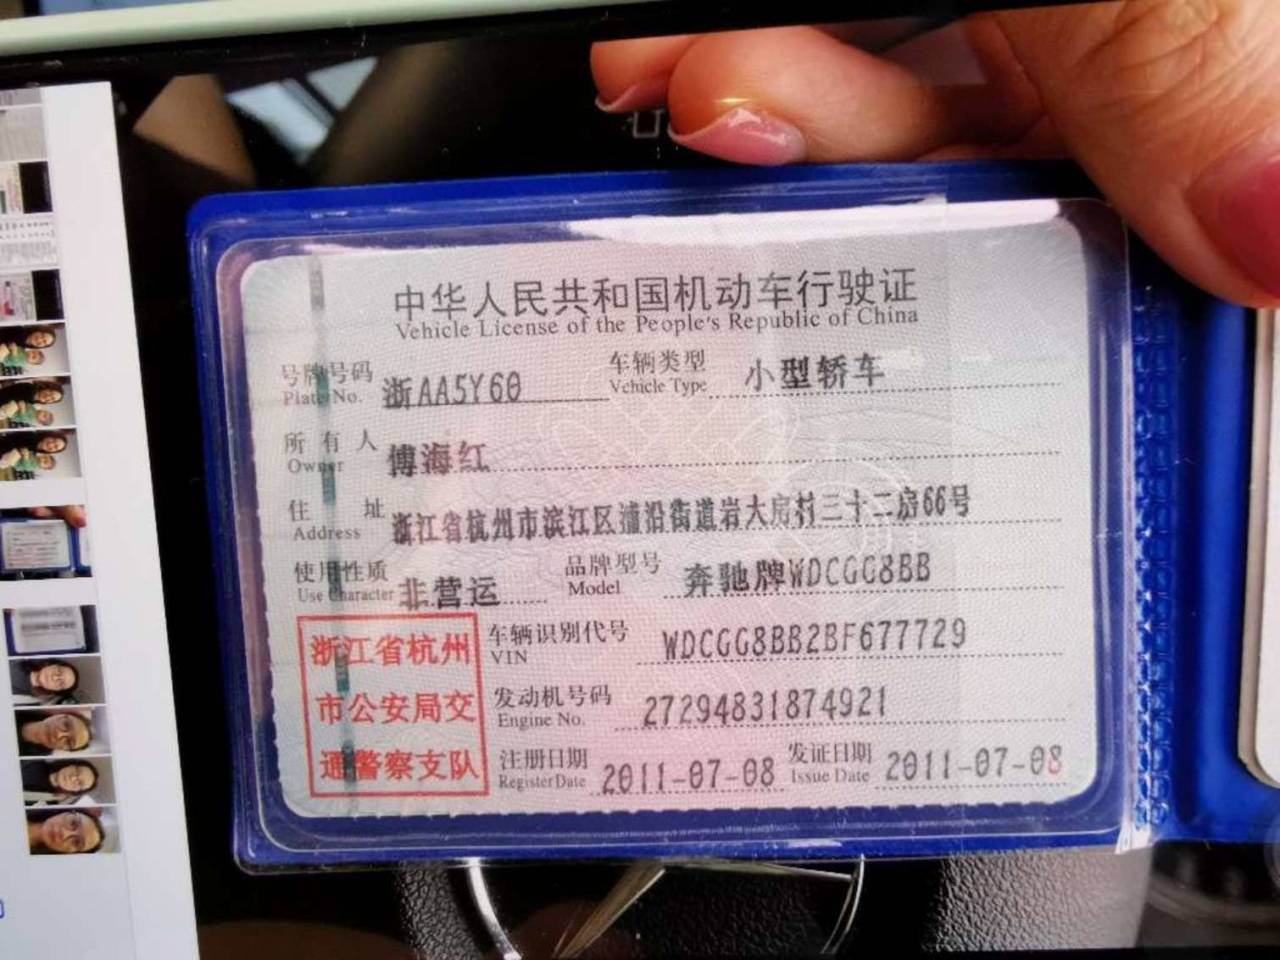 中华人民共和国机动车行驶证
Vehicle License of the People's Republic of China
号牌号码 浙AA5Y60 车辆类型 小型轿车
Plate No. Vehicle Type
所有人 傅海红
Owner
住址 浙江省杭州市滨江区浦沿街道岩大房村三十二房66号
Address
使用性质 非营运 品牌型号 奔驰牌WDCGG8BB
Use Character Model
浙江省杭州
市公安局交
通警察支队
车辆识别代号 WDCGG8BB2BF677729
VIN
发动机号码 27294831874921
Engine No.
注册日期 2011-07-08 发证日期 2011-07-08
Register Date Issue Date